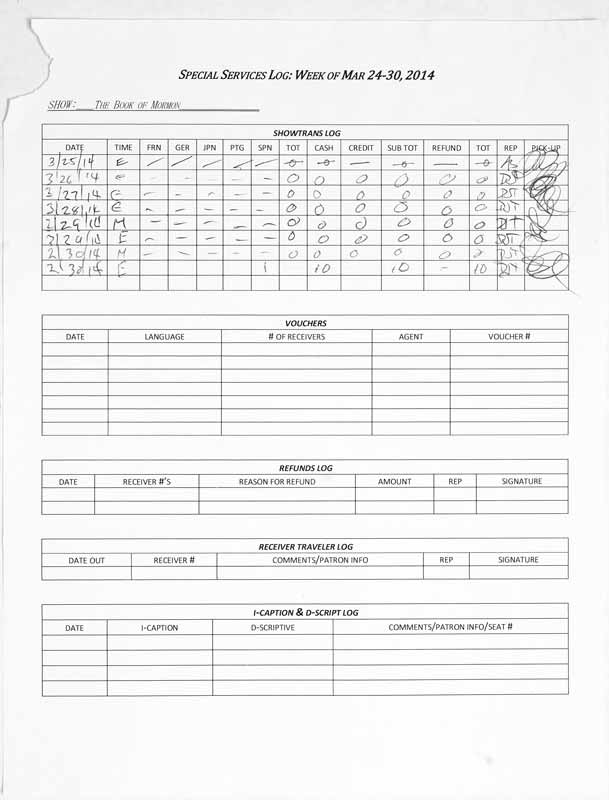 SPECIAL SERVICES LOG: WEEK OF MAR 24-30, 2014
SHOW: THE BOOK OF MORMON
SHOWTRANS LOG
DATE TIME FRN GER JPN PTG SPN TOT CASH CREDIT SUB TOT REFUND TOT REP PICK-UP
3/25/14 E / / / / / 0 0 — 0 — 0
3/26/14 E - - - - - 0 0 0 0 0 0
3/27/14 E - - - - - 0 0 0 0 0 0
3/28/14 E - - - - - 0 0 0 0 0 0
3/29/14 M - - - - - 0 0 0 0 0 0
3/29/14 E - - - - - 0 0 0 0 0 0
3/30/14 M - - - - - 0 0 0 0 0 0
3/30/14 E 1 10 10 - 10
VOUCHERS
DATE LANGUAGE # OF RECEIVERS AGENT VOUCHER #
REFUNDS LOG
DATE RECEIVER #'S REASON FOR REFUND AMOUNT REP SIGNATURE
RECEIVER TRAVELER LOG
DATE OUT RECEIVER # COMMENTS/PATRON INFO REP SIGNATURE
I-CAPTION & D-SCRIPT LOG
DATE I-CAPTION D-SCRIPTIVE COMMENTS/PATRON INFO/SEAT #